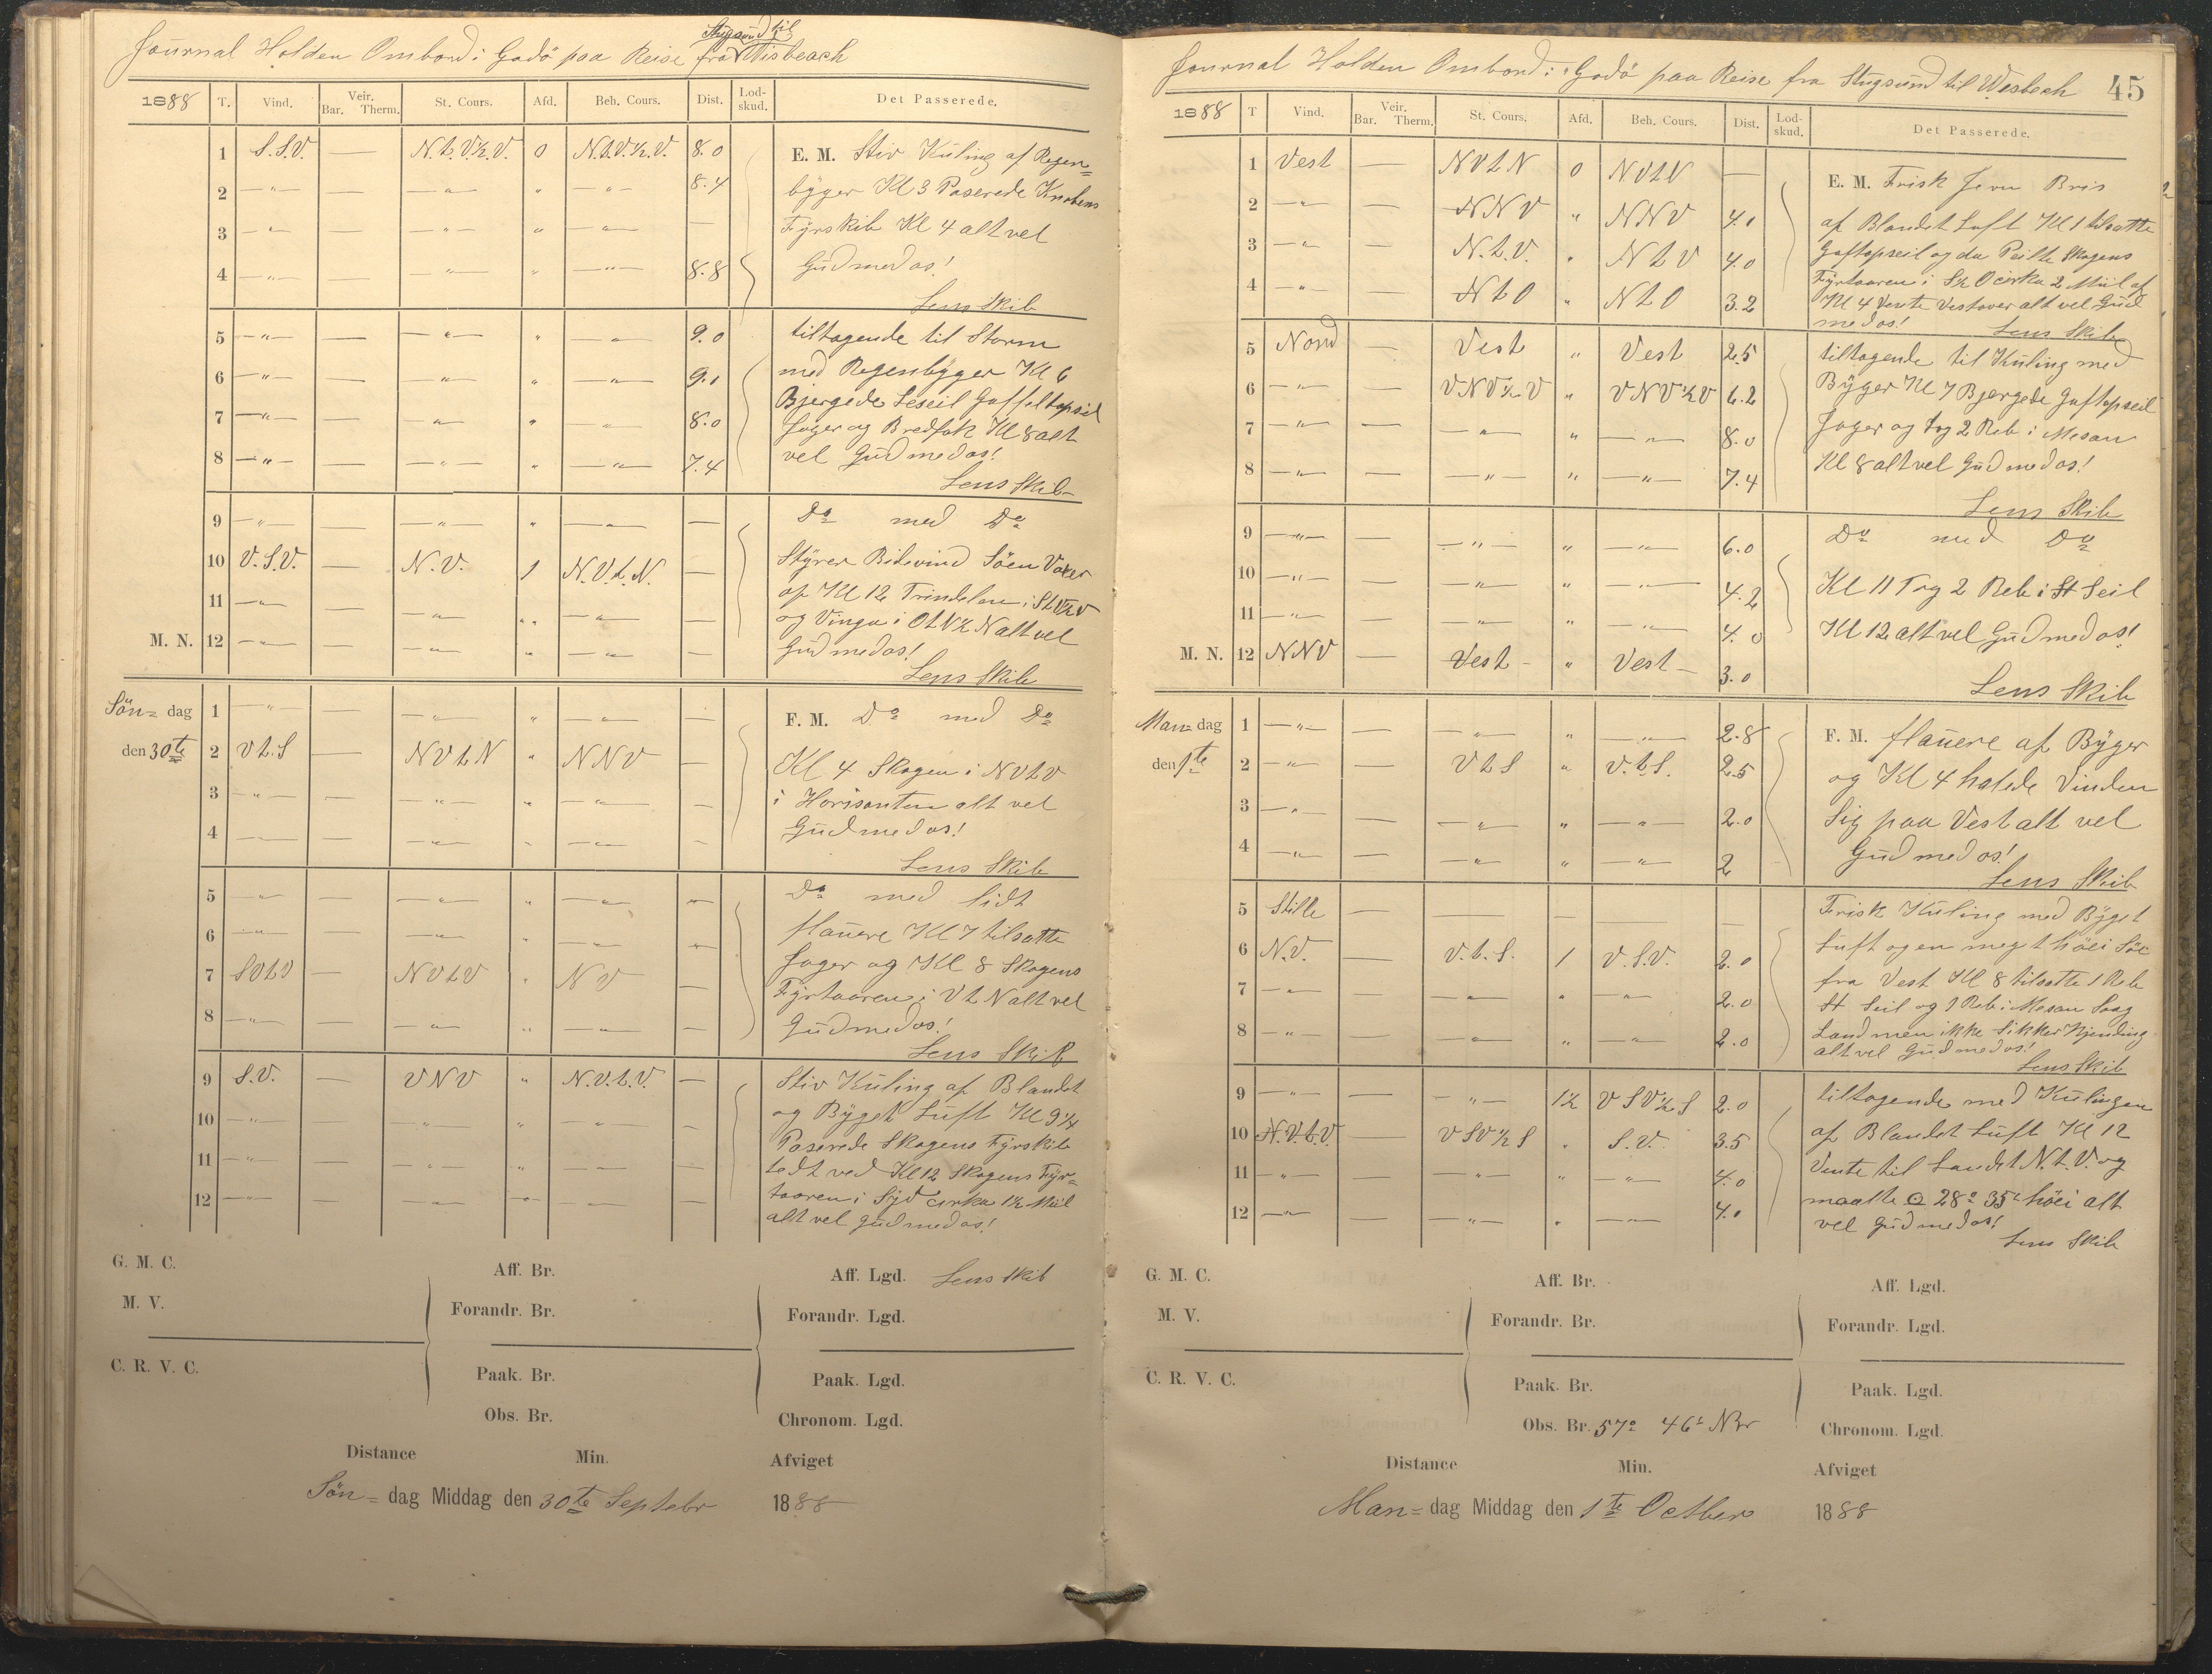 Journal Holden Ombord i Godö paa Reise fra Stugsund til Wisbeach
1888 T. Vind. Veir. Bar. Therm. St. Cours. Afd. Beh. Cours. Dist. Lod-skud. Det Passerede.
1 S.S.V. — N.t.V.½.V. 0 N.t.V.½.V. 8.0
2 —"— — —"— " —"— 8.4
3 —"— — —"— " —"— —
4 —"— — —"— " —"— 8.8
E. M. Stiv Kuling af Regen=
byger Kl 3 Paserede Knobens
Fyrskib Kl 4 alt vel
Gud med os!
Lens Skib
5 —"— — —"— " —"— 9.0
6 —"— — —"— " —"— 9.1
7 —"— — —"— " —"— 8.0
8 —"— — —"— " —"— 7.4
tiltagende til Storm
med Regenbyger Kl 6
Bjergede Leseil Gaffeltopseil
Jager og Bredfok Kl 8 alt
vel Gud med os!
Lens Skib
9 —"— — —"— " —"— —
10 V.S.V. — N.V. 1 N.V.t.N. —
11 —"— — —"— " —"— —
M. N. 12 —"— — —"— " —"— —
Do med Do
Styrer Bidevind Söen Voxer
op Kl 12 Trindelen i StV½V
og Vinga i OtN½N alt vel
Gud med os!
Lens Skib
Sön= dag 1 —"— — —"— " —"— —
den 30te 2 V t. S — NV t N " NNV —
3 —"— — —"— " —"— —
4 — — —"— — —"— —
F. M. Do med Do
Kl 4 Skagen i NVtV
i Horisonten alt vel
Gud med os!
Lens Skib
5 —"— — —"— " —"— —"—
6 —"— — —"— " —"— —"—
7 SVtV — NVtV " NV —
8 —"— — —"— " —"— —
Do med lidt
flauere Kl 7 tilsatte
Jager og Kl 8 Skagens
Fyrtaaren i VtN alt vel
Gud med os!
Lens Skib
9 S.V. — VNV " N.V.t.V. —
10 —"— —"— " —"— —
11 —"— — —"— " —"— —
12 —"— — —"— " —"— —
Stiv Kuling af Blandet
og Byget Luft Kl 9¼
Paserede Skagens Fyrskib
tedt ved Kl 12 Skagens Fyr=
taaren i Syd cirka 1½ Miil
alt vel Gud med os!
G. M. C. Aff. Br. Aff. Lgd. Lens Skib
M. V. Forandr. Br. Forandr. Lgd.
C. R. V. C. Paak. Br. Paak. Lgd.
Obs. Br. Chronom. Lgd.
Distance Min. Afviget
Sön= dag Middag den 30te Septebr 1888
Journal Holden Ombord i Godö paa Reise fra Stugsund til Wesbech 45
1888 T Vind. Veir. Bar. Therm. St. Cours. Afd. Beh. Cours. Dist. Lod-skud. Det Passerede.
1 Vest — NVtN 0 NVtN —
2 —"— — NNV " NNV 4.1
3 —"— — N.t.V. " NtV 4.0
4 —"— — NtO " NtO 3.2
E. M. Frisk Jevn Bris
af Blandet Luft Kl 1 tilsatte
Gaftopseil og da Peilte Skagens
Fyrtaaren i S½O cirka 2 Miil af
Kl 4 Vente Vestover alt vel Gud
med os!
Lens Skib
5 Nord — Vest " Vest 2.5
6 —"— — VNV½V " VNV½V 6.2
7 —"— — —"— " —"— 8.0
8 —"— — —"— " —"— 7.4
tiltagende til Kuling med
Byger Kl 7 Bjergede Gaftopseil
Jager og tog 2 Reb i Mesan
Kl 8 alt vel Gud med os!
Lens Skib
9 —"— — —"— " —"— 6.0
10 —"— — —"— " —"— 4.2
11 —"— — —"— " —"— 4.0
M. N. 12 NNV — Vest — " Vest — 3.0
Do med Do
Kl 11 Tog 2 Reb i St Seil
Kl 12 alt vel Gud med os!
Lens Skib
Man= dag 1 —"— — —"— " —"— 2.8
den 1te 2 —"— — VtS " V.t.S. 2.5
3 —"— — —"— " —"— 2.0
4 —"— — —"— " —"— 2
F. M. flauere af Byger
og Kl 4 halede Vinden
Sig paa Vest alt vel
Gud med os!
Lens Skib
5 Stille — — — — —
6 N.V. — V.t.S. 1 V.S.V. 2.0
7 —"— — —"— " —"— 2.0
8 —"— — —"— " —"— 2.0
Frisk Kuling med Byget
Luft og en meget höei Söe
fra Vest Kl 8 tilsatte 1 Reb
St Seil og 1 Reb i Mesan Saag
Land men ikke Sikker Kjending
alt vel Gud med os!
Lens Skib
9 —"— — —"— 1½ VSV½S 2.0
10 N.V.t.V — VSV½S " S.V. 3.5
11 —"— — —"— " —"— 4.0
12 —"— — —"— " —"— 4.1
tiltagende med Kulingen
af Blandet Luft Kl 12
Vente til Landet N.t.V. og
maalte 28° 35' höei alt
vel Gud med os!
Lens Skib
G. M. C. Aff. Br. Aff. Lgd.
M. V. Forandr. Br. Forandr. Lgd.
C. R. V. C. Paak. Br. Paak. Lgd.
Obs. Br. 57° 46' NBr Chronom. Lgd.
Distance Min. Afviget
Man= dag Middag den 1te October 1888